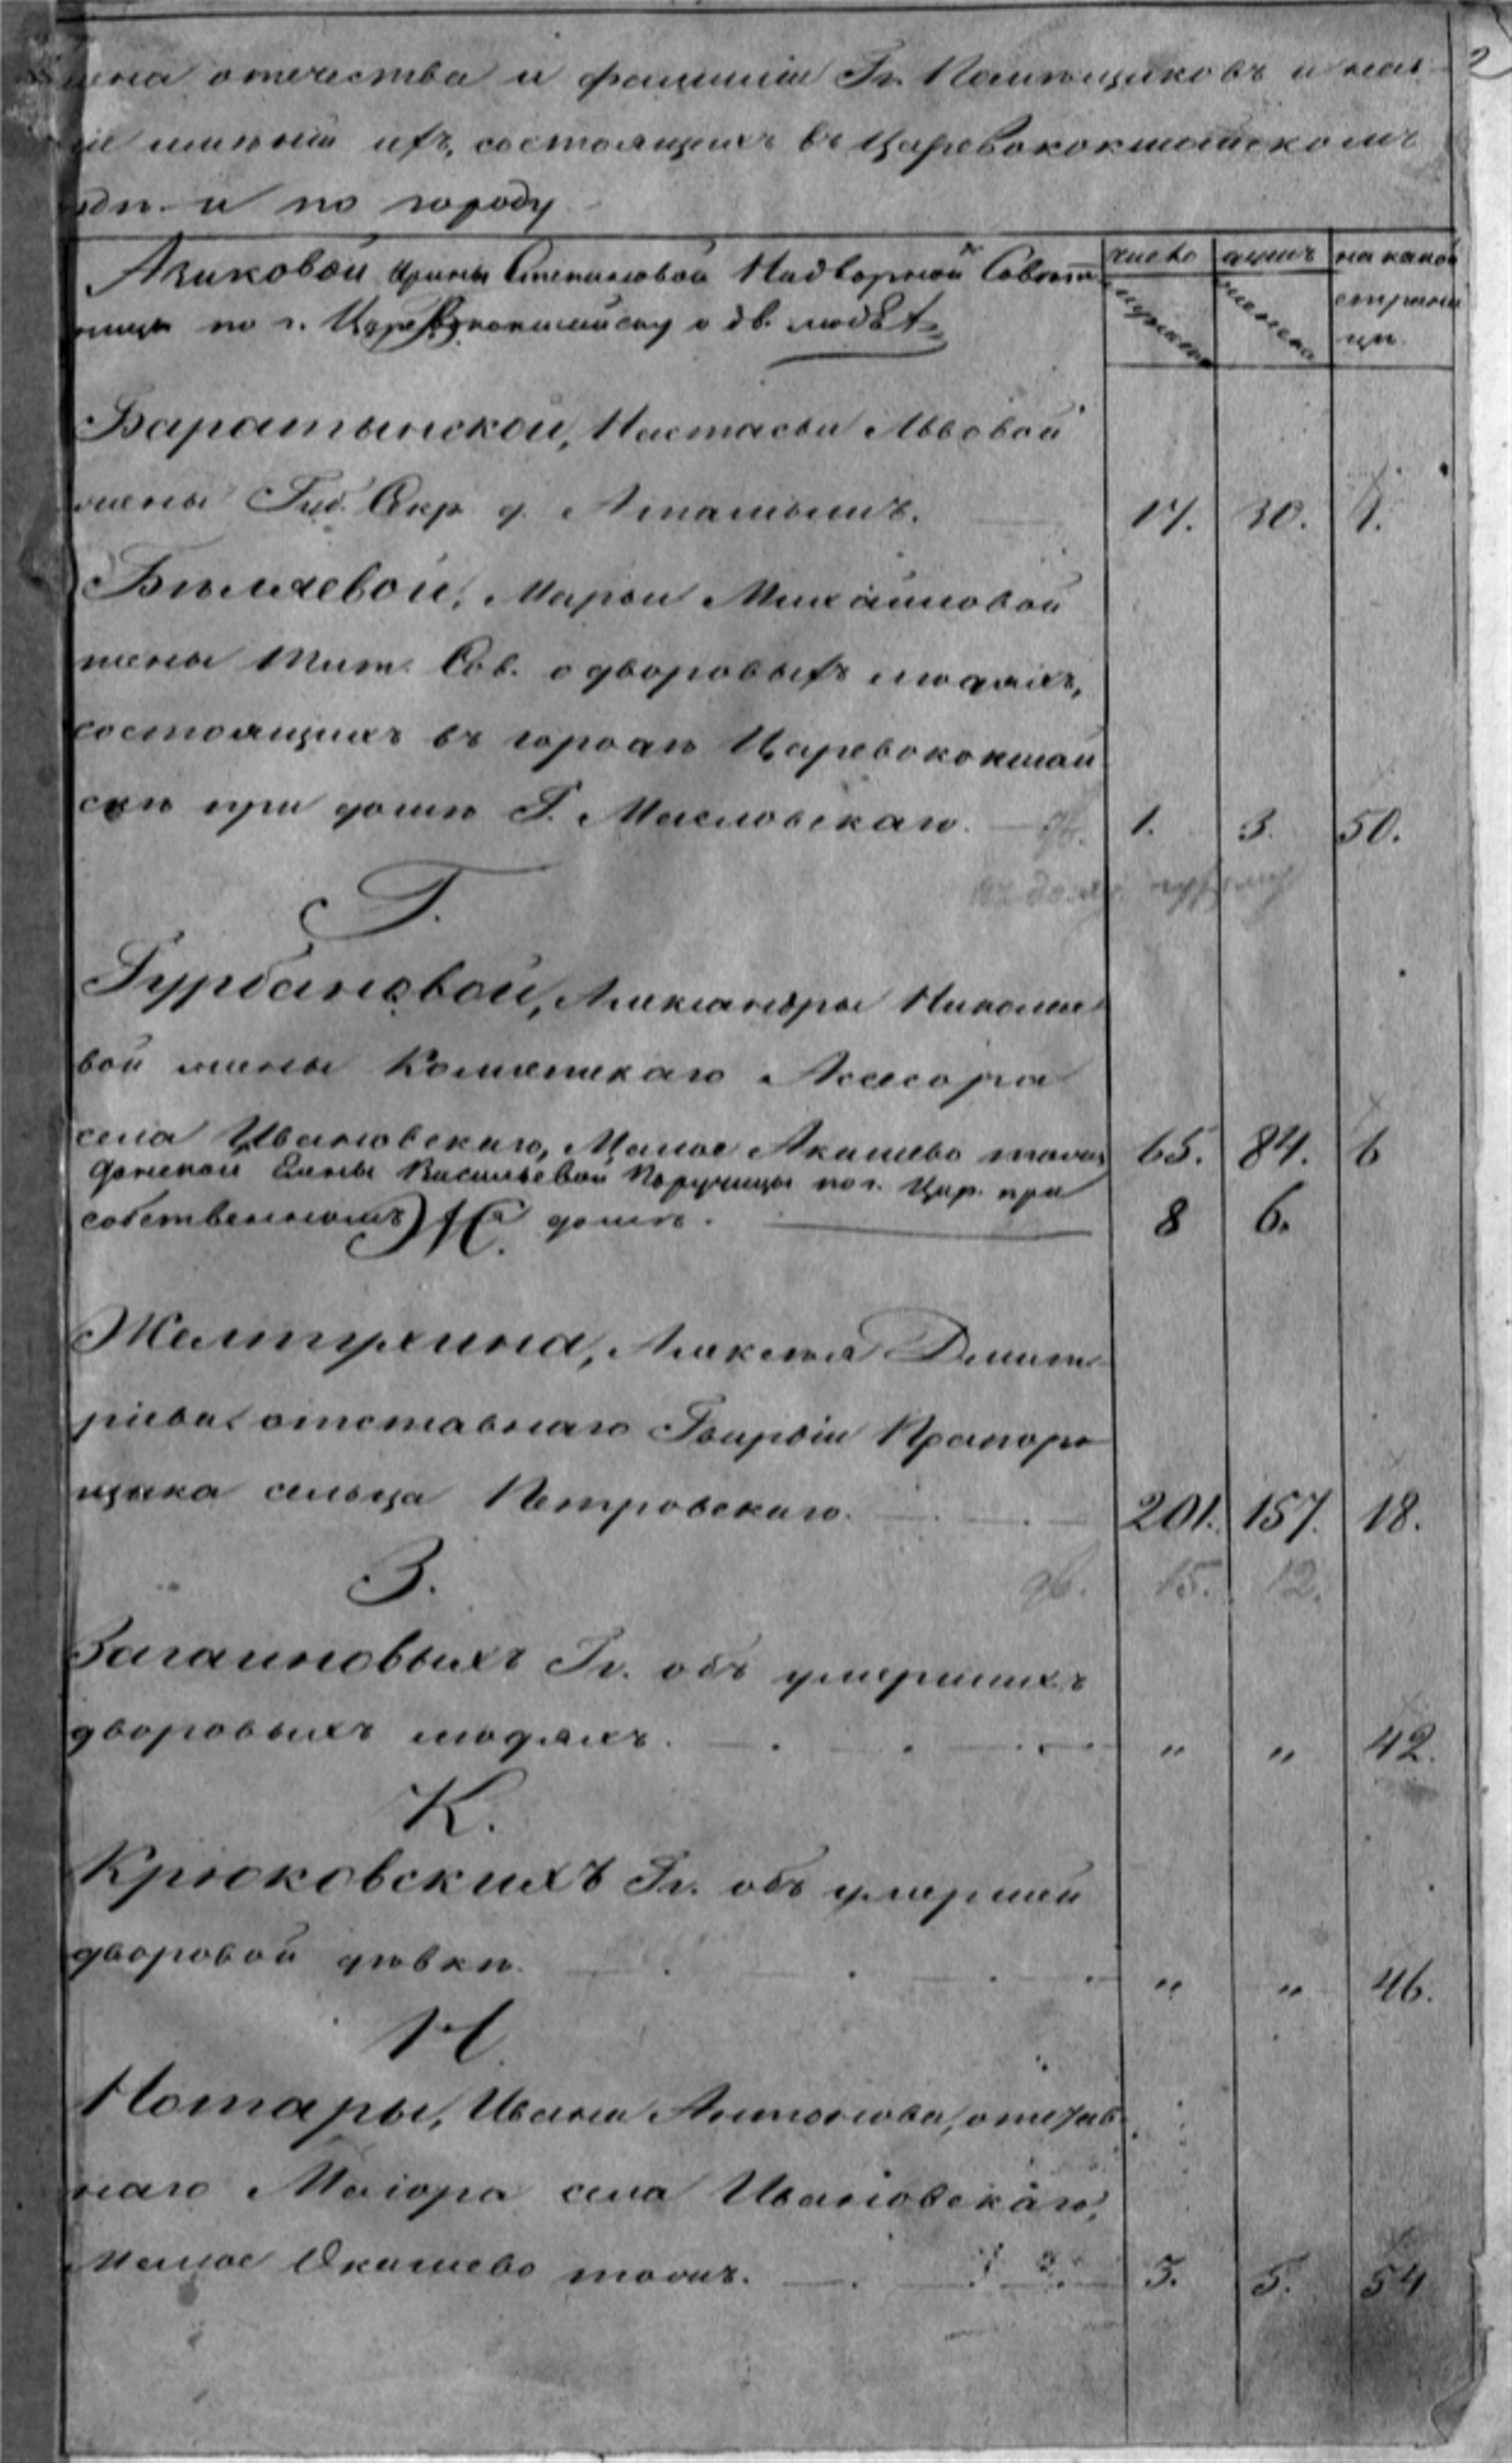 2
имена отечества и фамиліи Гг. Помѣщиковъ и наз
имѣній ихъ, состоящихъ въ Царевококшайскомъ
и по городу
число душъ на какой
Ирины Степановой Надворной Совѣт
ницы по г. Царевококшайску о дв. людѣхъ
мужеска женска страни
цѣ.
Баратынской, Настасьи Львовой
жены Губ. Секр. д. 17. 30. 1.
Бѣляевой, Марьи Михайловой
жены Тит. Сов. о дворовыхъ людяхъ,
состоящихъ въ городѣ Царевококшай
скѣ при домѣ Г. Масловскаго. дв. 1. 3. 50.
Г.
Гурбановой, Александры Николае
вой жены Коллежскаго Асесора
села Ивановскаго, Малое Акашево тожъ 65. 84. 6
Донской Елены Васильевой Поручицы по г. Цар. при
собственномъ домѣ. 8 6.
Ж.
Желтухина, Алексея Дмит
ріева отставнаго Гвардіи Прапор
щика сельца Петровскаго. 201. 157. 18.
З. дв. 15. 12.
Загаиновыхъ Гг. объ умершихъ
дворовыхъ людяхъ. " " 42.
К.
Крюковскихъ Гг. объ умершей
дворовой дѣвкѣ. " " 46.
Н
Нотары, Ивана Антонова, отстав
наго Маіора села Ивановскаго,
Малое Окашево тожъ. 3. 5. 54